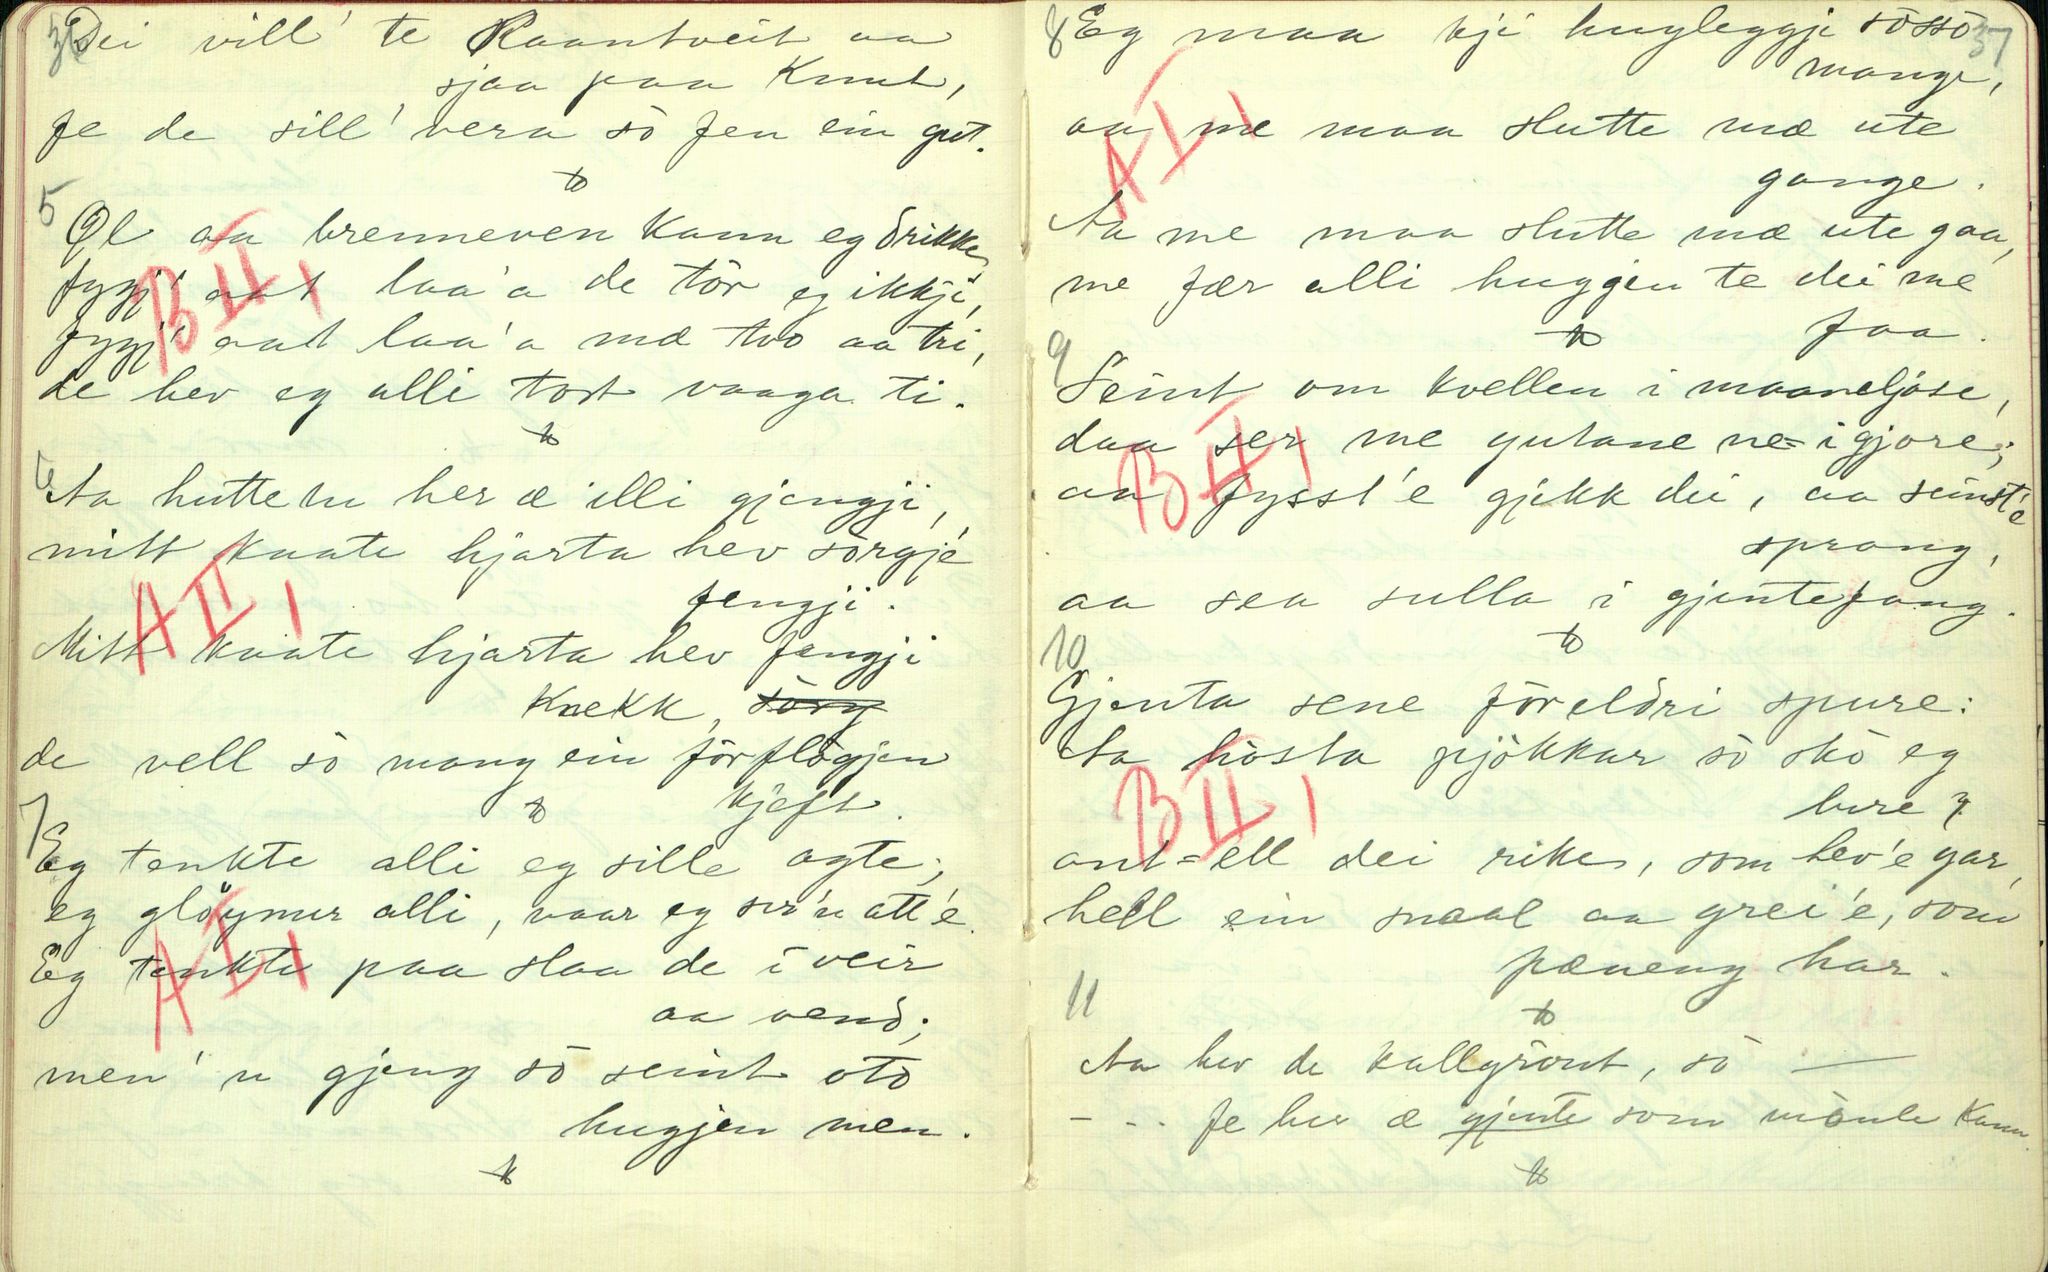 36
Dei vill' te Raantveit aa
sjaa paa Knut,
fe de sill' vera so fen ein gut.
5
Øl aa brenneven kann eg drikke,
fygj' aat laa'a de tör eg ikkji,
fygj' aat laa'a mæ tvo aa tri,
de hev eg alli tort vaaga ti.
6
Aa huttetu her æ illi gjengji,
mitt kaate hjarta hev sörgje
fengji.
Mitt kaate hjarta hev fengji
knekk, sörg
de vell so mang ein förflögjen
kjeft.
7
Eg tenkte alli eg sille agte;
eg glöymer alli, naar eg ser'n att'e.
Eg tenkte paa slaa de i veir
aa vend;
men 'n gjeng so seint oto
hugjen men.
A II, 1
B II, 1
A I, 1
37
8 Eg maa kji hugleggji sösso
mange,
aa me maa slutte mæ ute
gange.
Aa me maa slutte mæ ute gaa,
me fær alli huggjen te dei me
faa.
9
Seint om kvellen i maaneljose,
daa ser me gutane ne-i gjore;
aa fysst'e gjekk dei, aa seinst'e
sprang,
aa sea sulla i gjentefang.
10
Gjenta sene föreldri spure:
Aa hosta pjökkar so sko eg
bure?
ant-ell dei rike, som hev'e gar,
hell ein snaal aa grei'e, som
pæneng har.
11
Aa hev de kallgrönt, so —
- - . fe her æ gjente som
B II, 1